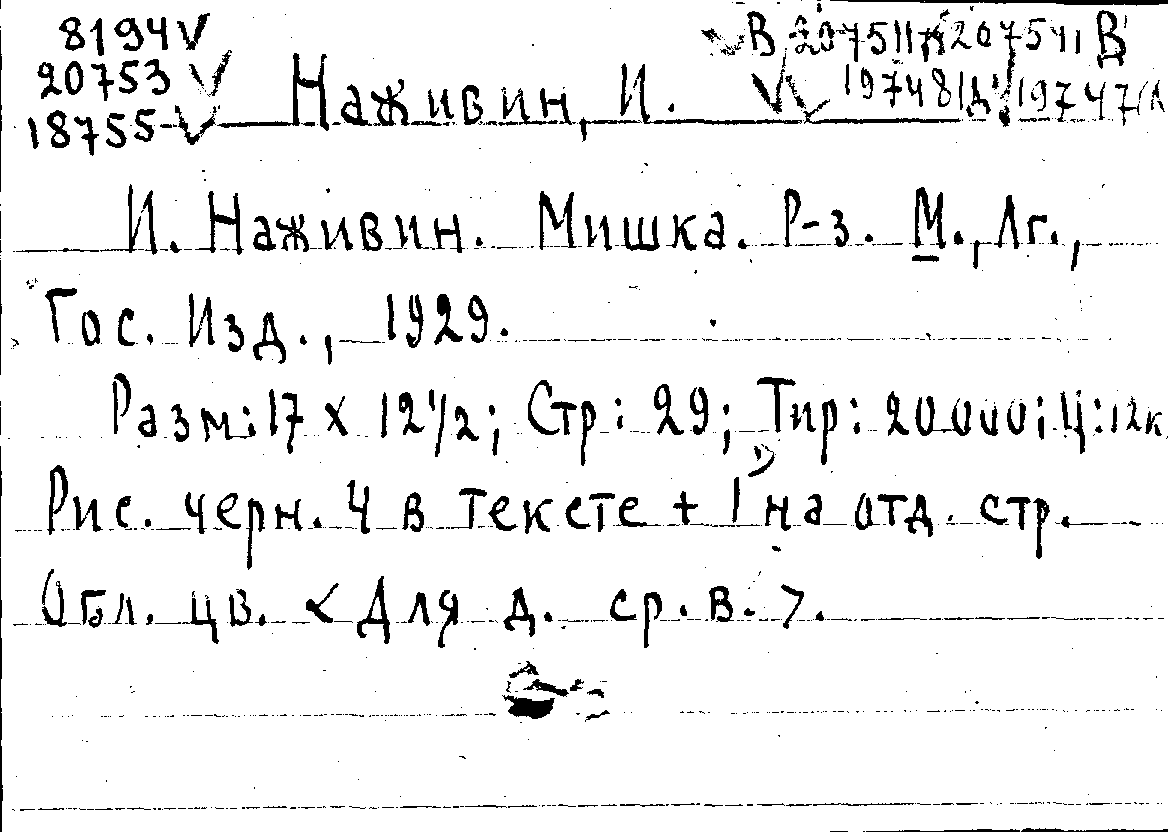 8194 V
20753 V
18755 V
Наживин, И.
19748/д 19747/
И. Наживин. Мишка. Р-з. М., Лг.,
Гос. Изд., 1929.
Разм: 17 х 12 1/2; Стр: 29; Тир: 20000; Ц: 12к
Рис. черн. 4 в тексте + 1 на отд. стр.
Обл. цв. <Для д. ср. в.>.